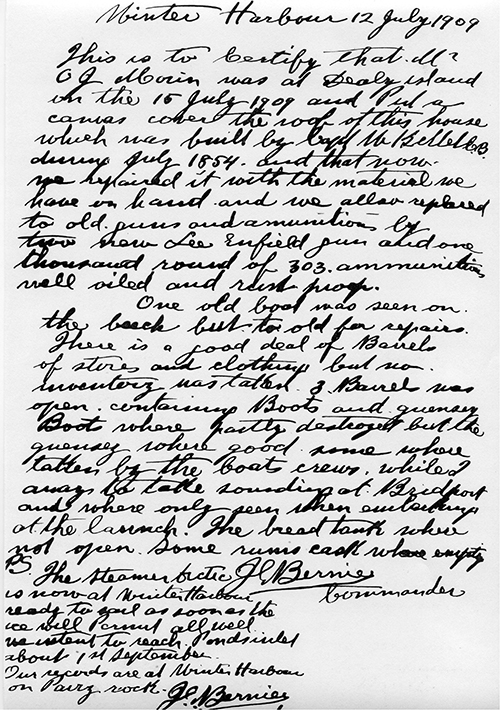 Winter Harbour 12 July 1909
This is to Certify that Mr
O J Morin was at Dealy island
on the 15 July 1909 and Put a
canvas cover the roof of this house
which was built by Capt
during July 1854. and that now.
we repaired it with the material we
have on hand. and we allso replaced
to old guns and amunitions by
two new Lee Enfield gun and one
thousand round of 303. ammunitions
well oiled and rust proof.
One old boat was seen on.
the beech but to old for repairs.
There is a good deal of Barrels
of stores and clothing but no
inventory was taken. 3 Barrels was
open. containing Boots and guensey
Boot where partly destroyed but the
guensey where good some where
taken by the boat crews. while I
away to take sounding at Bridport
and where only seen when embarking
at the launch. The bread tank where
not open. Some rums cask where empty
PS J E Bernier
The Steamer Arctic Commander
is now at Winter Harbour
ready to sail as soon as the
ice will Permit all well
we intent to reach. Ponds inlet
about 1st September.
Our records are at Winter Harbour
on Parry rock. J. E. Bernier